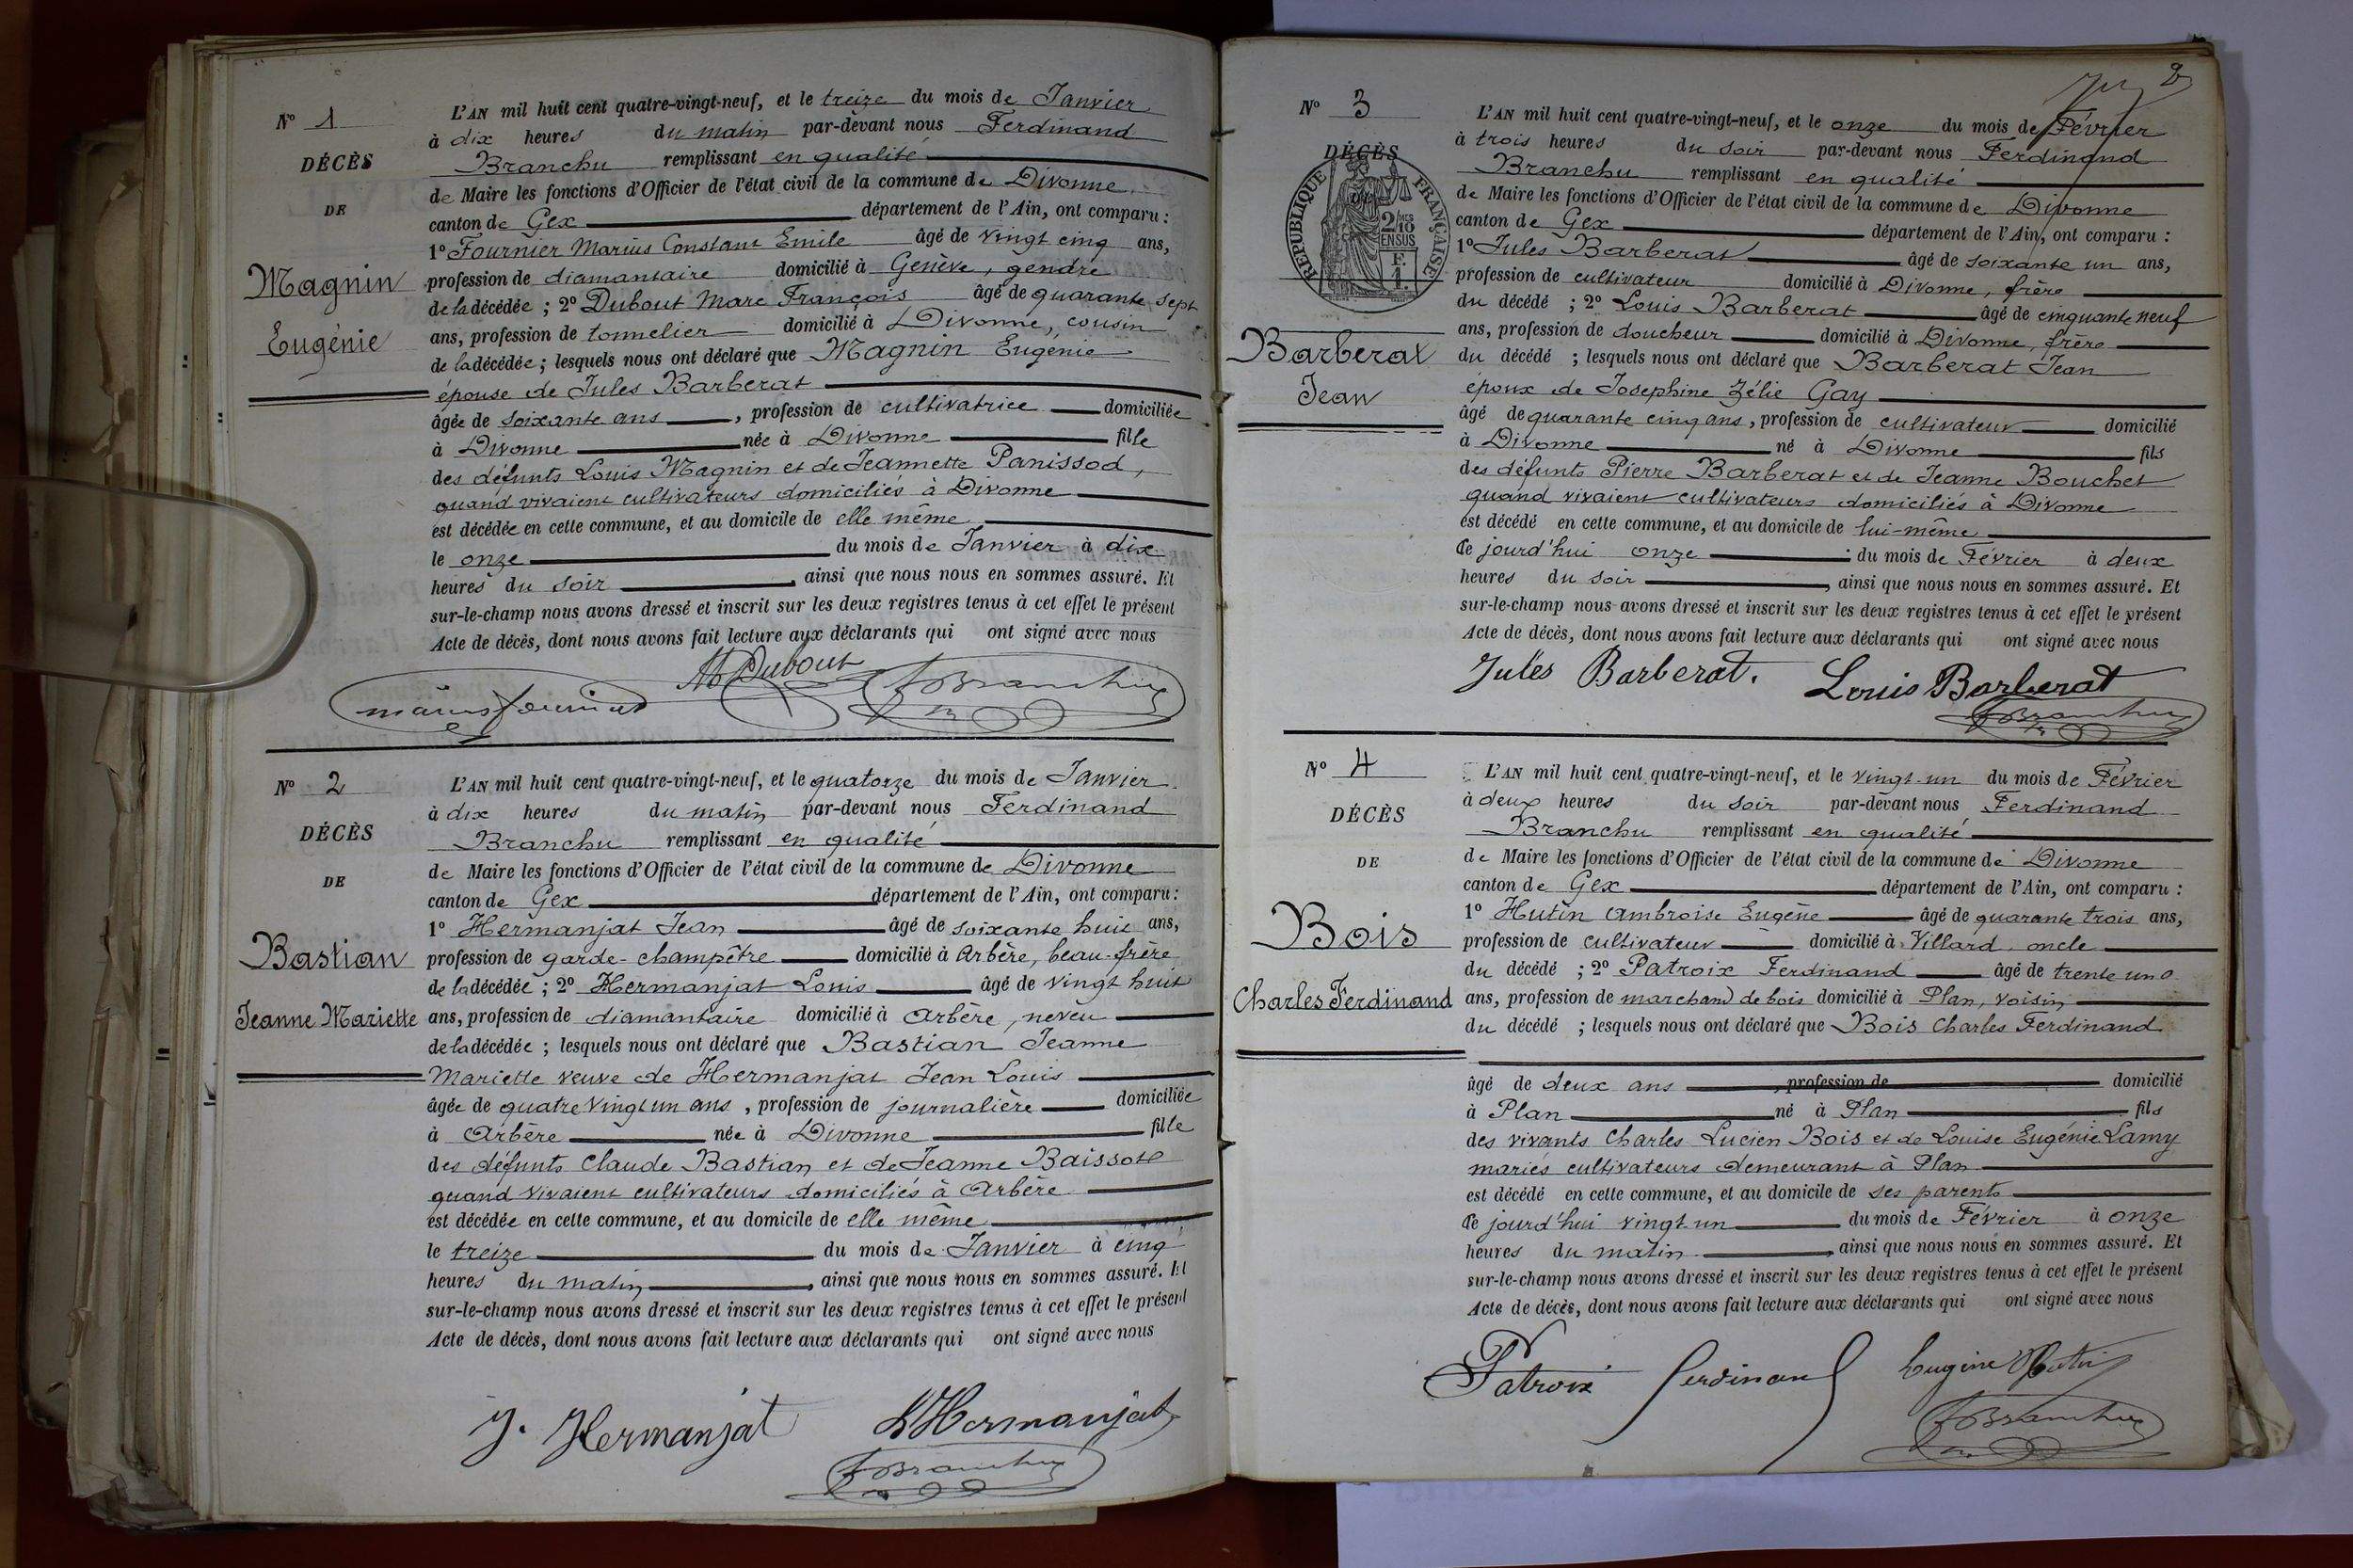 N° 1
DÉCÈS
DE
Magnin
Eugénie
L'AN mil huit cent quatre-vingt-neuf, et le treize du mois de Janvier
à dix heures du matin par-devant nous Ferdinand
Branchu remplissant en qualité
de Maire les fonctions d'Officier de l'état civil de la commune de Divonne
canton de Gex département de l'Ain, ont comparu :
1° Fournier Marius Constant Emile âgé de vingt cinq ans,
profession de diamantaire domicilié à Genève, gendre
de la décédée ; 2° Dubout Marc François âgé de quarante sept
ans, profession de tonnelier domicilié à Divonne, cousin
de la décédée ; lesquels nous ont déclaré que Magnin Eugénie
épouse de Jules Barberat
âgée de soixante ans, profession de cultivatrice domiciliée
à Divonne née à Divonne fille
des défunts Louis Magnin et de Jeannette Panissod,
quand vivaient cultivateurs domiciliés à Divonne
est décédée en cette commune, et au domicile de elle même
le onze du mois de Janvier à dix
heures du soir, ainsi que nous nous en sommes assuré. Et
sur-le-champ nous avons dressé et inscrit sur les deux registres tenus à cet effet le présent
Acte de décès, dont nous avons fait lecture aux déclarants qui ont signé avec nous
M Dubout
marius fournier FBranchu
N° 2
DÉCÈS
DE
Bastian
Jeanne Mariette
L'AN mil huit cent quatre-vingt-neuf, et le quatorze du mois de Janvier
à dix heures du matin par-devant nous Ferdinand
Branchu remplissant en qualité
de Maire les fonctions d'Officier de l'état civil de la commune de Divonne
canton de Gex département de l'Ain, ont comparu :
1° Hermanjat Jean âgé de soixante huit ans,
profession de garde-champêtre domicilié à Arbère, beau-frère
de la décédée ; 2° Hermanjat Louis âgé de vingt huit
ans, profession de diamantaire domicilié à Arbère, neveu
de la décédée ; lesquels nous ont déclaré que Bastian Jeanne
Mariette veuve de Hermanjat Jean Louis
âgée de quatre vingt un ans, profession de journalière domiciliée
à Arbère née à Divonne fille
des défunts Claude Bastian et de Jeanne Baissote
quand vivaient cultivateurs domiciliés à Arbère
est décédée en cette commune, et au domicile de elle même
le treize du mois de Janvier à cinq
heures du matin, ainsi que nous nous en sommes assuré. Et
sur-le-champ nous avons dressé et inscrit sur les deux registres tenus à cet effet le présent
Acte de décès, dont nous avons fait lecture aux déclarants qui ont signé avec nous
J. Hermanjat LHermanjat
FBranchu
2
N° 3
DÉCÈS
RÉPUBLIQUE FRANÇAISE
2/10
EN SUS
F.
1.
Barberat
Jean
L'AN mil huit cent quatre-vingt-neuf, et le onze du mois de Février
à trois heures du soir par-devant nous Ferdinand
Branchu remplissant en qualité
de Maire les fonctions d'Officier de l'état civil de la commune de Divonne
canton de Gex département de l'Ain, ont comparu :
1° Jules Barberat âgé de soixante un ans,
profession de cultivateur domicilié à Divonne, frère
du décédé ; 2° Louis Barberat âgé de cinquante neuf
ans, profession de doucheur domicilié à Divonne, frère
du décédé ; lesquels nous ont déclaré que Barberat Jean
époux de Josephine Zélie Gay
âgé de quarante cinq ans, profession de cultivateur domicilié
à Divonne né à Divonne fils
des défunts Pierre Barberat et de Jeanne Bouchet
quand vivaient cultivateurs domiciliés à Divonne
est décédé en cette commune, et au domicile de lui-même
Ce jourd'hui onze du mois de Février à deux
heures du soir, ainsi que nous nous en sommes assuré. Et
sur-le-champ nous avons dressé et inscrit sur les deux registres tenus à cet effet le présent
Acte de décès, dont nous avons fait lecture aux déclarants qui ont signé avec nous
Jules Barberat. Louis Barberat
FBranchu
N° 4
DÉCÈS
DE
Bois
Charles Ferdinand
L'AN mil huit cent quatre-vingt-neuf, et le vingt-un du mois de Février
à deux heures du soir par-devant nous Ferdinand
Branchu remplissant en qualité
de Maire les fonctions d'Officier de l'état civil de la commune de Divonne
canton de Gex département de l'Ain, ont comparu :
1° Hutin Ambroise Eugène âgé de quarante trois ans,
profession de cultivateur domicilié à Villard oncle
du décédé ; 2° Patroix Ferdinand âgé de trente un
ans, profession de marchand de bois domicilié à Plan, voisin
du décédé ; lesquels nous ont déclaré que Bois Charles Ferdinand
âgé de deux ans, profession de domicilié
à Plan né à Plan fils
des vivants Charles Lucien Bois et de Louise Eugénie Lamy
mariés cultivateurs demeurant à Plan
est décédé en cette commune, et au domicile de ses parents
Ce jourd'hui vingt-un du mois de Février à onze
heures du matin, ainsi que nous nous en sommes assuré. Et
sur-le-champ nous avons dressé et inscrit sur les deux registres tenus à cet effet le présent
Acte de décès, dont nous avons fait lecture aux déclarants qui ont signé avec nous
Patroix ferdinand Eugène Hutin
FBranchu